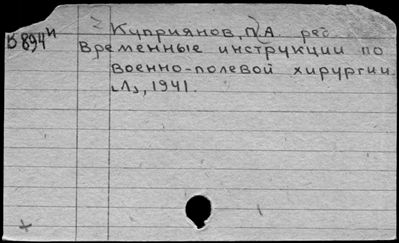 Куприянов, П.А. ред.
Б894и
Временные инструкции по
военно-полевой хирургии.
Л., 1941.